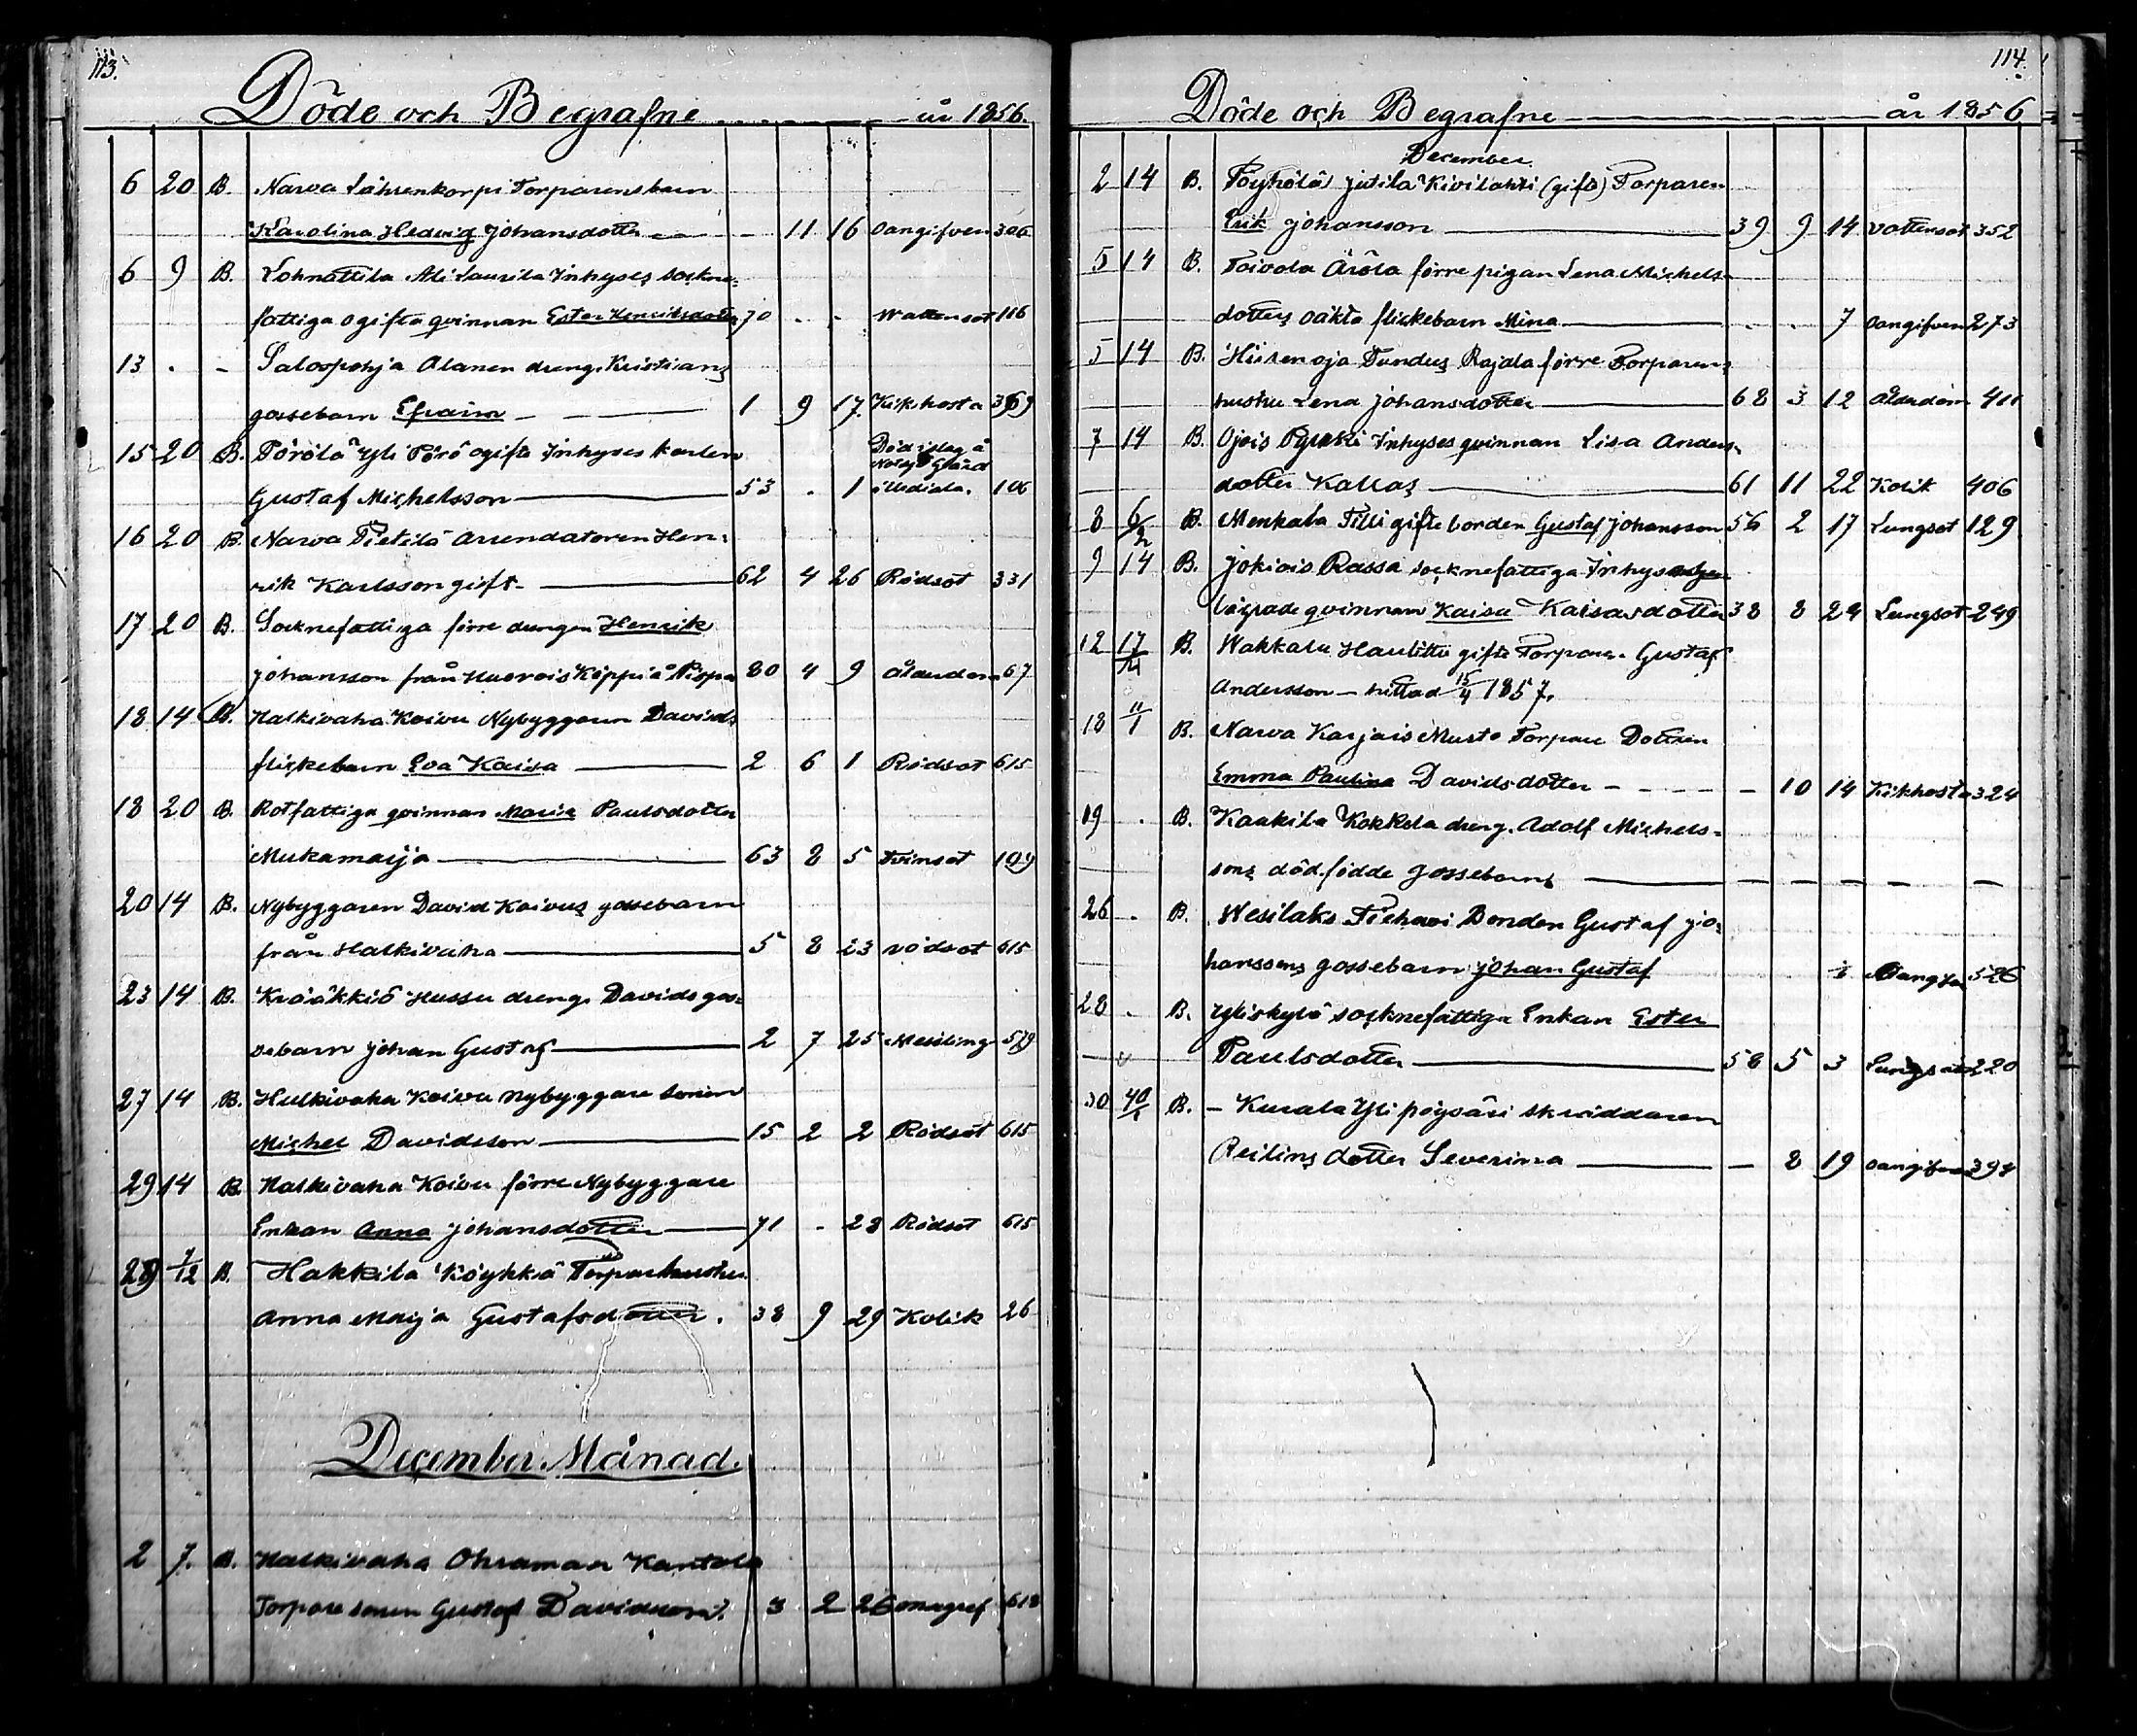 113.
Döde och Begrafne år 1856.
6 20 B. Narva Lähsenkorpi Torparensbarn
Karolina Hedvig Johansdotter - 11 16 oangifven 306
6 9 B. Lohnattila Ali Laurila Inhyses sockne-
fattiga ogifta qvinnan Ester Henriksdotter 70 - - Wattensot 116
13 . - Salospohja Alanen dreng. Kristians
gossebarn Efraim 1 9 17 Kikhosta 369
15 20 B. Pörölä Yli Pörö ogifte Inhyses karlen
Död idag å
Gustaf Michelsson 53 . 1 106
16 20 B. Narva Pietilä Arrendatoren Hen-
rik Karlsson gift. 62 4 26 Rödsot 331
17 20 B. Socknefattiga förre drengen Henrik
Johansson från Huovois Köppi å Nispa 80 4 9 ålderdom 67
18 14 B. Halkivaha Koivu Nybyggaren Davids
flickebarn Eva Kaisa 2 6 1 Rödsot 615
18 20 B. Rotfattiga qvinnan Maria Paulsdotter
Mukamaija 63 8 5 Tvinsot
20 14 B. Nybyggaren David Koivus gossebarn
från Halkivaha 5 8 23 rödsot 615
23 14 B. Krääkkiö Hussu dreng. Davids gos-
sebarn Johan Gustaf 2 7 25 Messling 579
27 14 B. Halkivaha Koivu Nybyggare sonen
Michel Davidsson 15 2 2 Rödsot 615
29 14 B. Halkivaha Koivu förre Nybyggare
Enkan Anna Johansdotter 71 - 28 Rödsot 615
29 7/12 B. Hakkila Köykkä Torparhustru
Anna Maija Gustafsdotter. 38 9 29 Kolik 26
December Månad.
2 7. B. Halkivaha Ohraman Kantola
Torpare sonen Gustaf Davidsson. 3 2 26 618
114.
Döde och Begrafne år 1856
December
2 14 B. Pöyhölä Jutila Kivilahti (gifte) Torparen
Erik Johansson 39 9 14 vattensot 352
5 14 B. Toivola Äröla förre pigan Lena Michels-
dotters oäkta flickebarn Mina - - 7 oangifven 273
5 14 B. Hiisenoja Tundus Rajala förre Torparens
hustru Lena Johansdotter 68 3 12 ålderdom 411
7 14 B. Ojois Pyykki Inhyses qvinnan Lisa Anders-
dotter Kallas 61 11 22 Kolik 406
8 6/2 B. Menkala Tilli gifte bonden Gustaf Johansson 56 2 17 Lungsot 129
9 14 B. Jokiois Rassa socknefattiga Inhyses
lägrade qvinnan Kaisa Kaisasdotter 38 8 24 Lungsot 249
12 17/4 B. Wakkala Haulittu gifte Torparen Gustaf
Andersson - hittad 15/4 1857.
18 11/1 B. Narva Karjais Musto Torpare Dottren
Emma Paulina Davidsdotter - 10 14 Kikhosta 324
19 . B. Kaakila Kokkola dreng. Adolf Michels-
sons dödfödde gossebarn - - - - -
26 . B. Wesilaks Tiehari Bonden Gustaf Jo-
hanssons gossebarn Johan Gustaf 526
28 . B. Yliskylä socknefattiga Enkan Ester
Paulsdotter 58 5 3 Lungsot 220
30 B. - Kurala Yli pöysäri skräddaren
Reilins dotter Severina - 8 19 oangifven